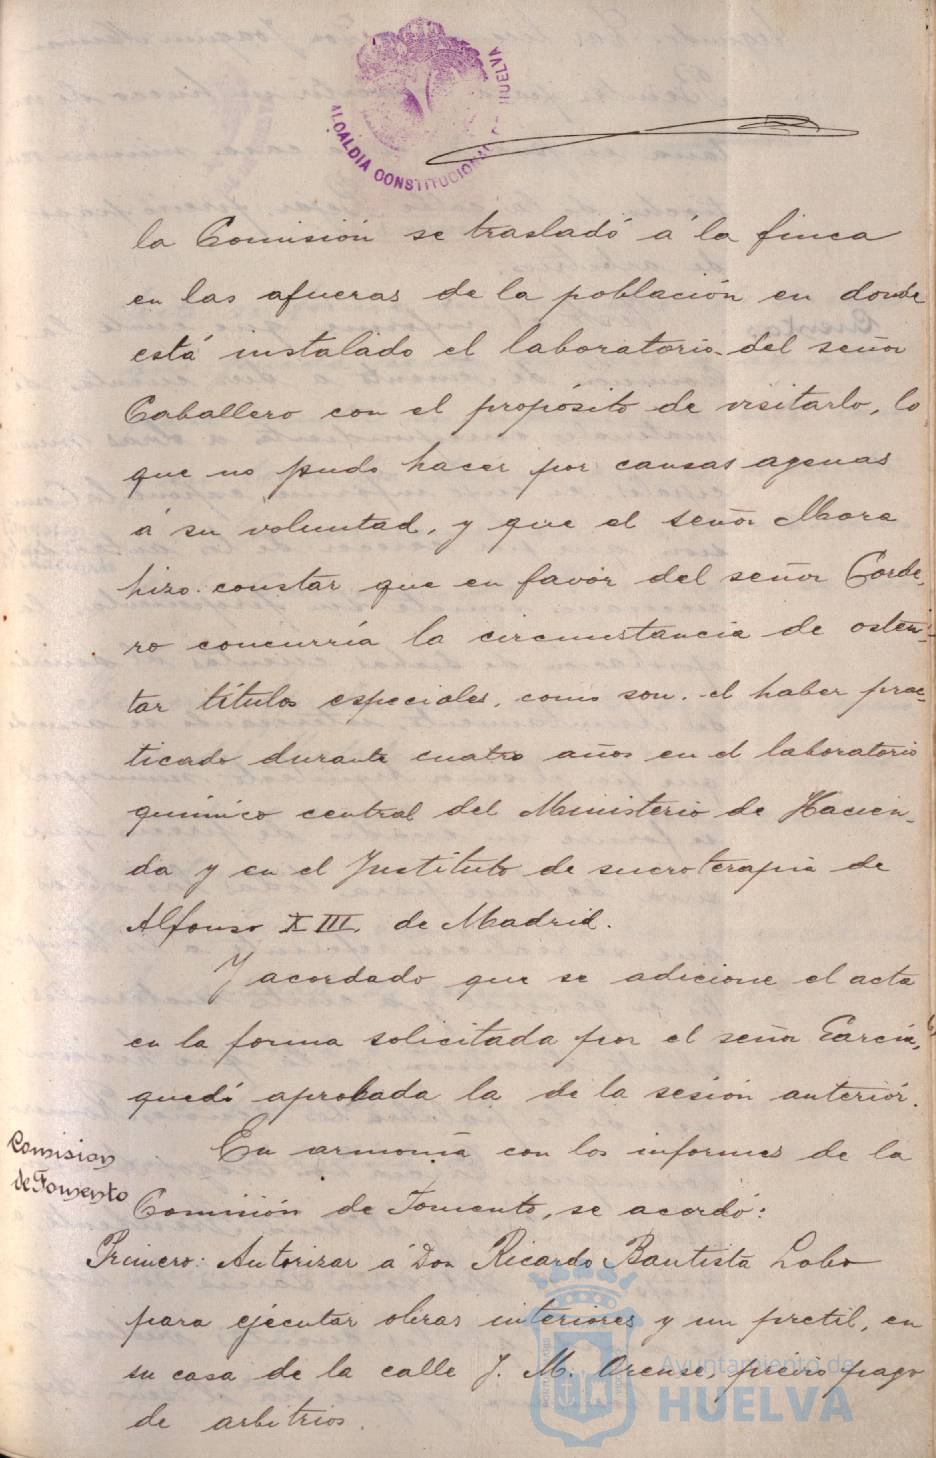 ALCALDIA CONSTITUCIONAL HUELVA
la Comisión se trasladó á la finca
en las afueras de la población en donde
está instalado el laboratorio del señor
Caballero con el propósito de visitarlo, lo
que no pudo hacer por causas agenas
á su voluntad, y que el señor Mora
hizo constar que en favor del señor Corde-
ro concurría la circunstancia de osten-
tar títulos especiales, como son. el haber prac-
ticado durante cuatro años en el laboratorio
químico central del Ministerio de Hacien-
da y en el Instituto de sueroterapia de
Alfonso XIII, de Madrid.
Y acordado que se adicione el acta
en la forma solicitada por el señor García,
quedó aprobada la de la sesión anterior.
Comision
de Fomento
En armonía con los informes de la
Comisión de Fomento, se acordó:
Primero: Autorizar á Don Ricardo Bautista Lobo
para ejecutar obras interiores y un pretil, en
su casa de la calle J. M. Orense, previo pago
de arbitrios.
Ayuntamiento de
HUELVA